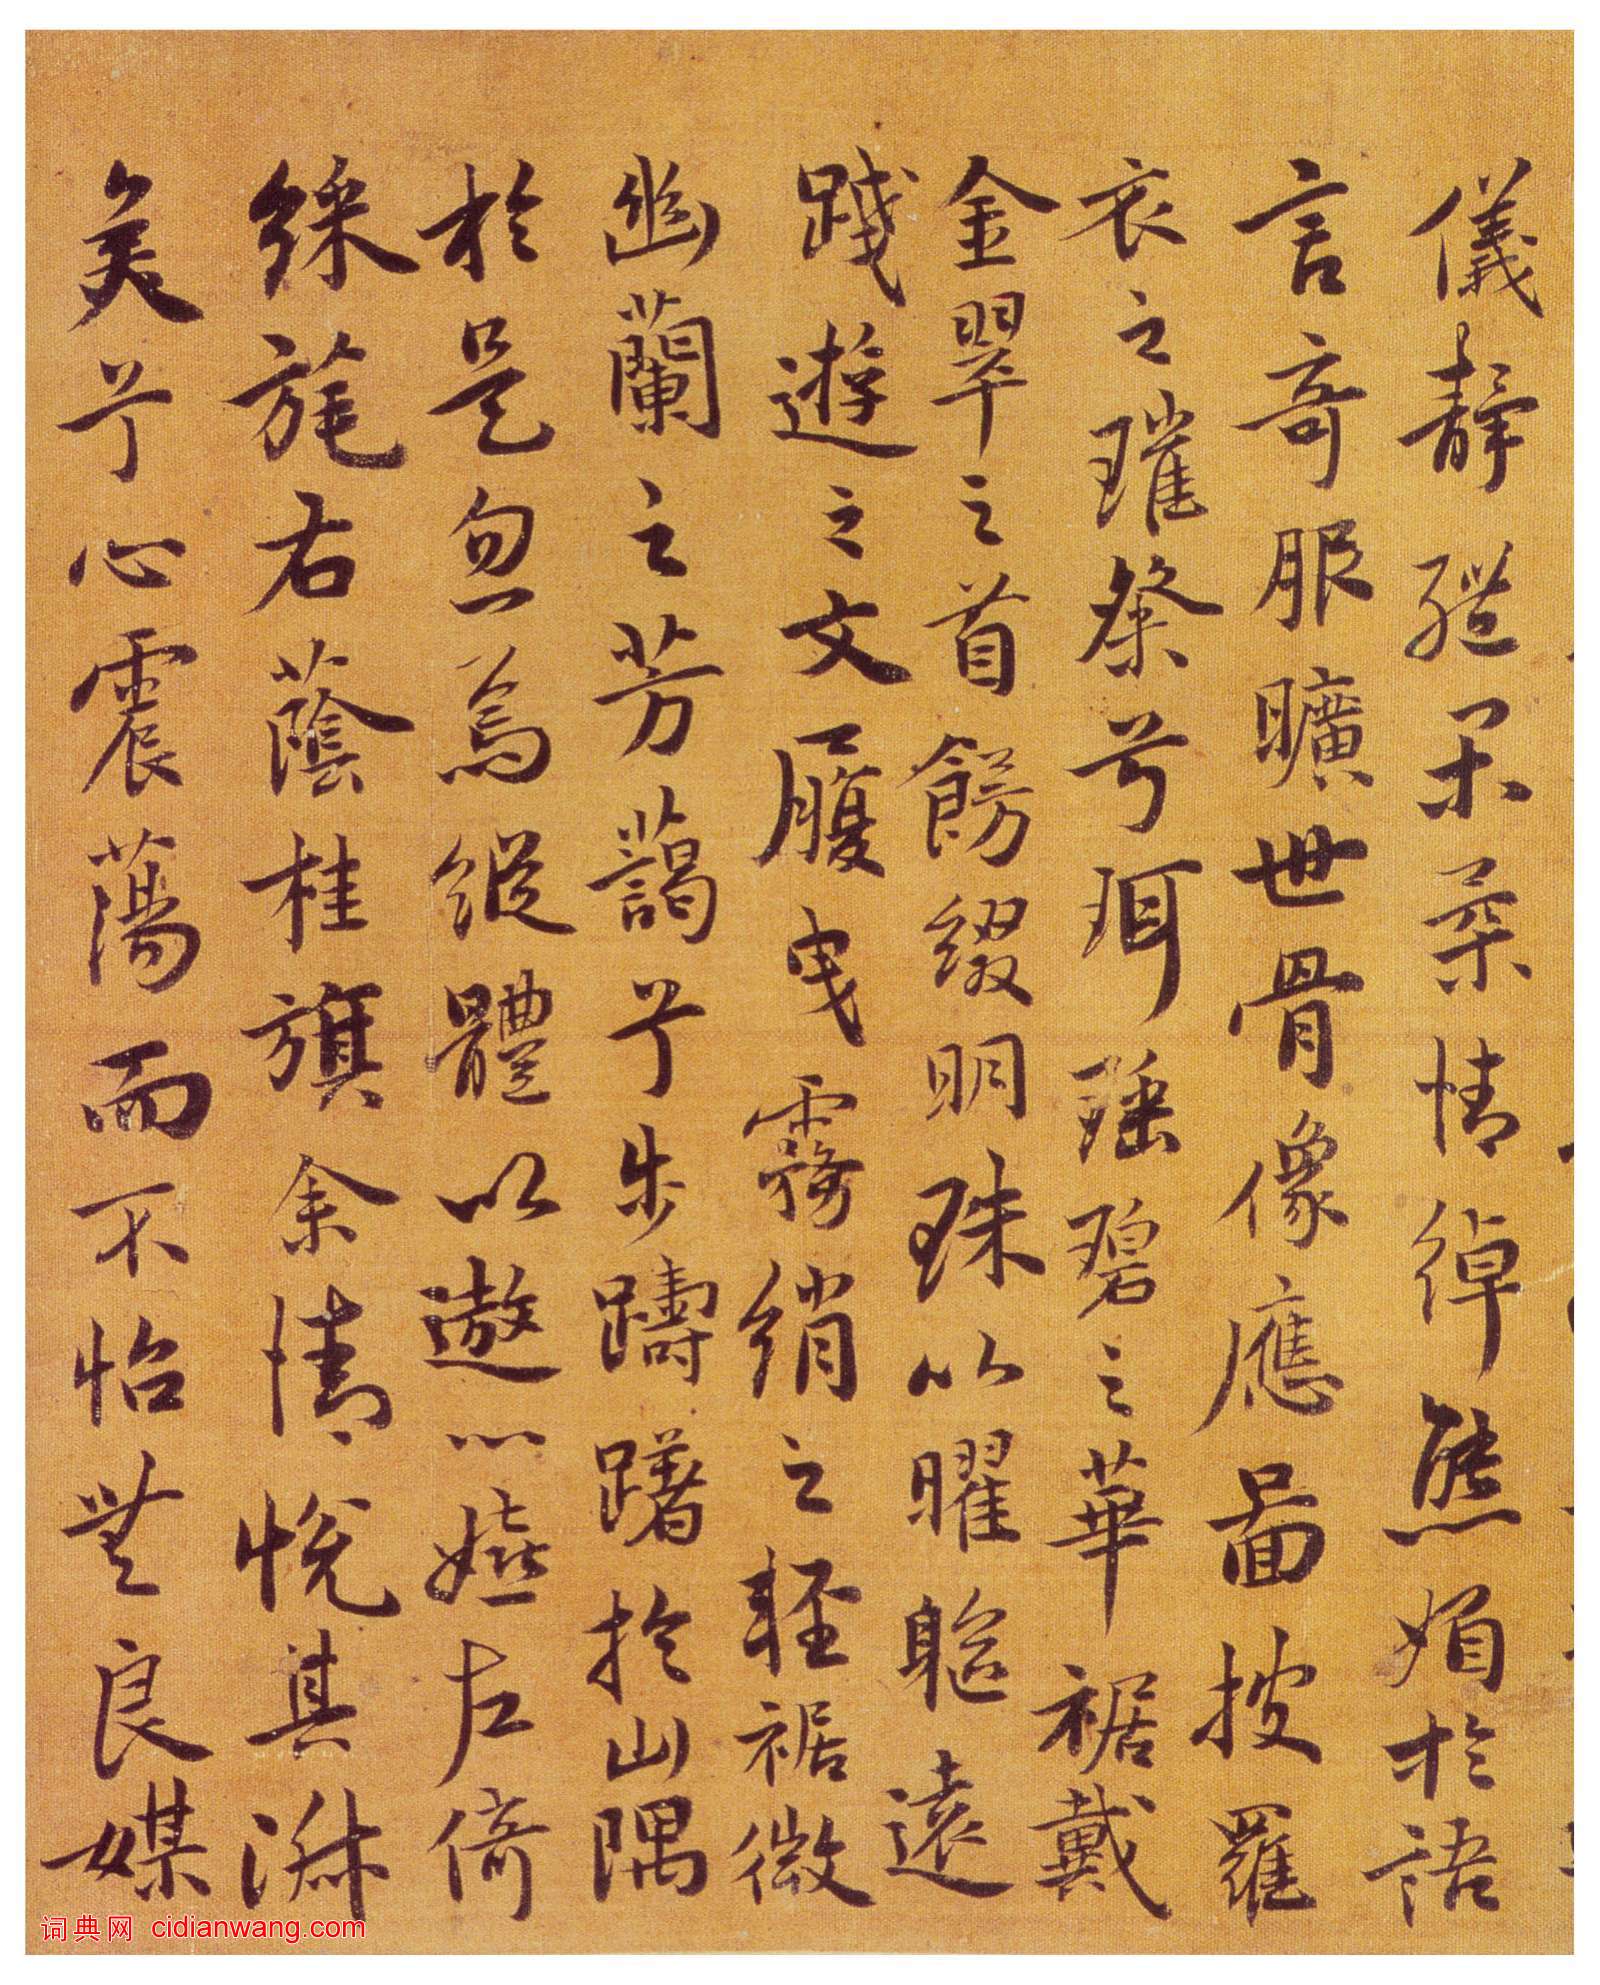 儀靜體閑柔情綽態媚於語
言奇服曠世骨像應圖披羅
衣之璀粲兮珥瑤碧之華裾戴
金翠之首餝綴明珠以曜軀遠
踐遊之文履曳霧綃之輕裾微
幽蘭之芳藹兮步躊躇於山隅
於是忽焉縱體以遨以嬉左倚
綵旄右蔭桂旗余情悅其淋
美兮心震蕩而不怡無良媒
词典网 cidianwang.com